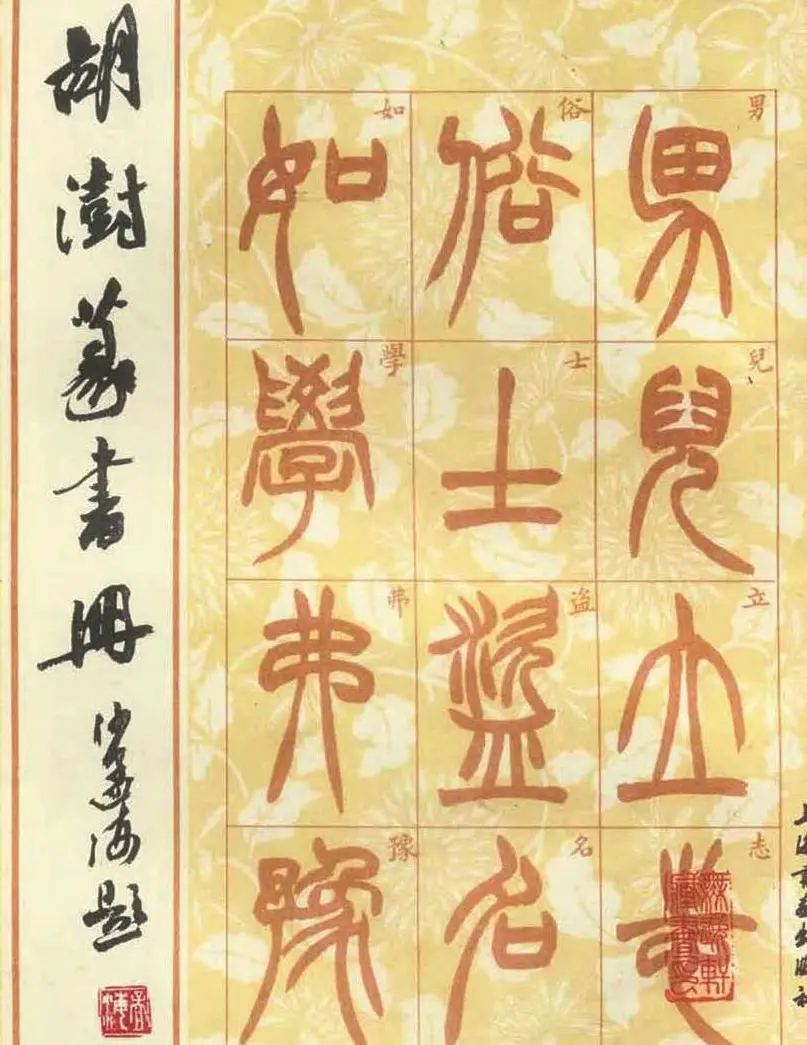 胡澍篆書冊
沙孟海題
男兒立志
男兒立志
俗士盜名
俗士盜名
如學弗豫
如學弗豫
上海書畫出版社